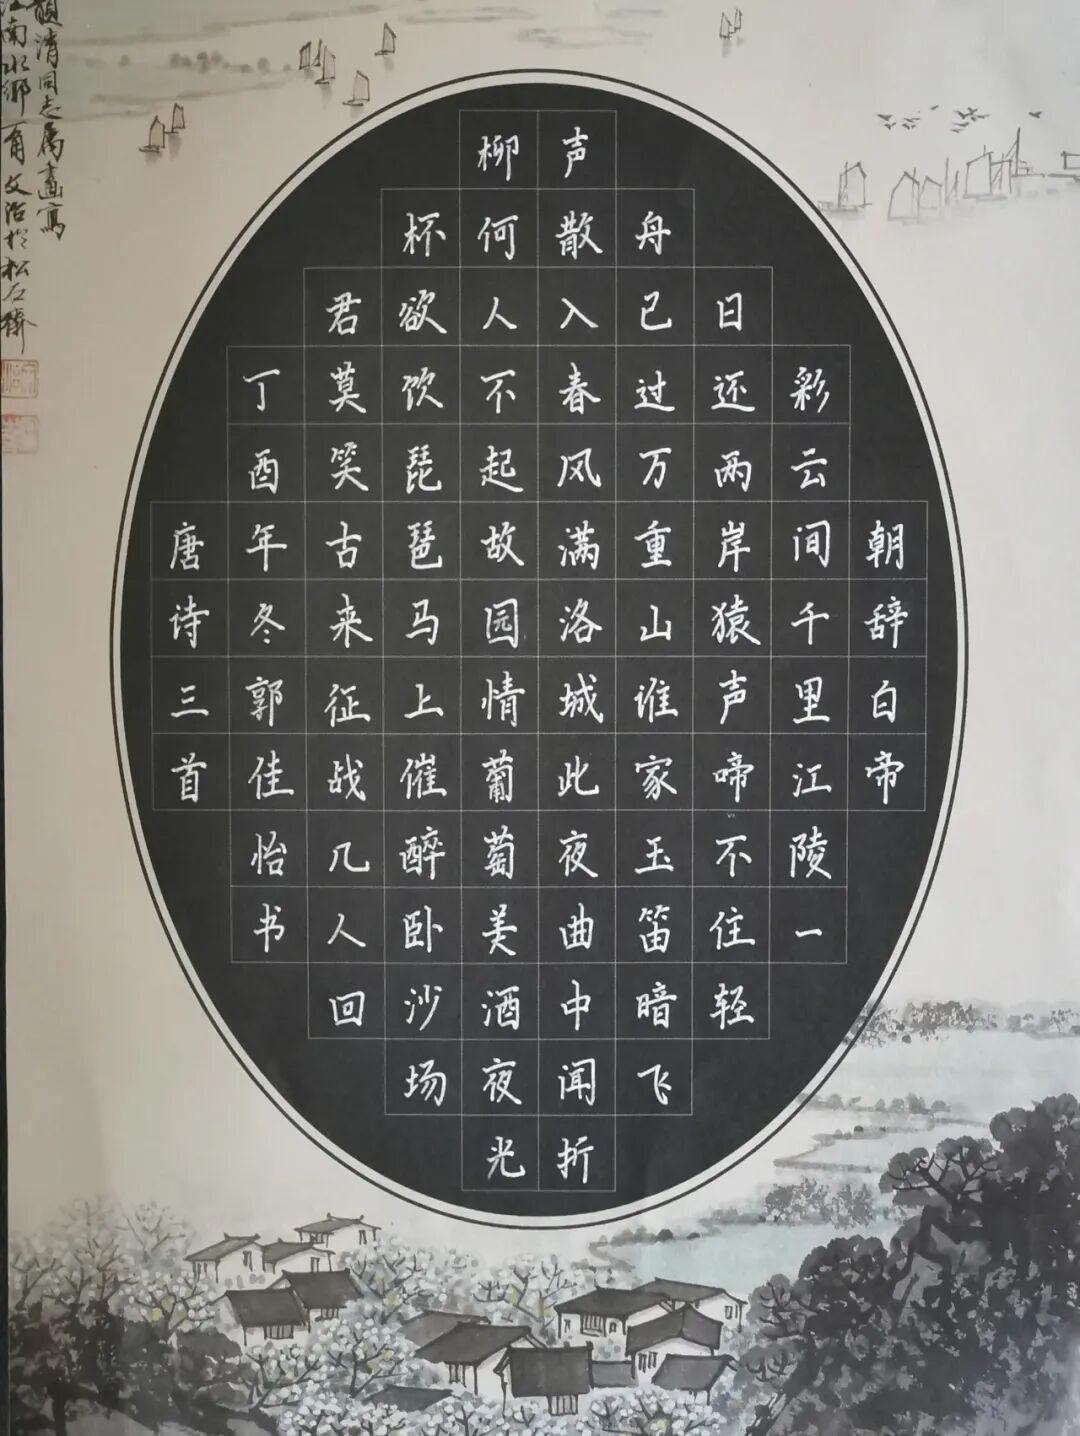 朝辞白帝
彩云间千里江陵一
日还两岸猿声啼不住轻
舟已过万重山谁家玉笛暗飞
声散入春风满洛城此夜曲中闻折
柳何人不起故园情葡萄美酒夜光
杯欲饮琵琶马上催醉卧沙场
君莫笑古来征战几人回
丁酉年冬郭佳怡书
唐诗三首
清同志属画写
江南水乡
文治于松石斋